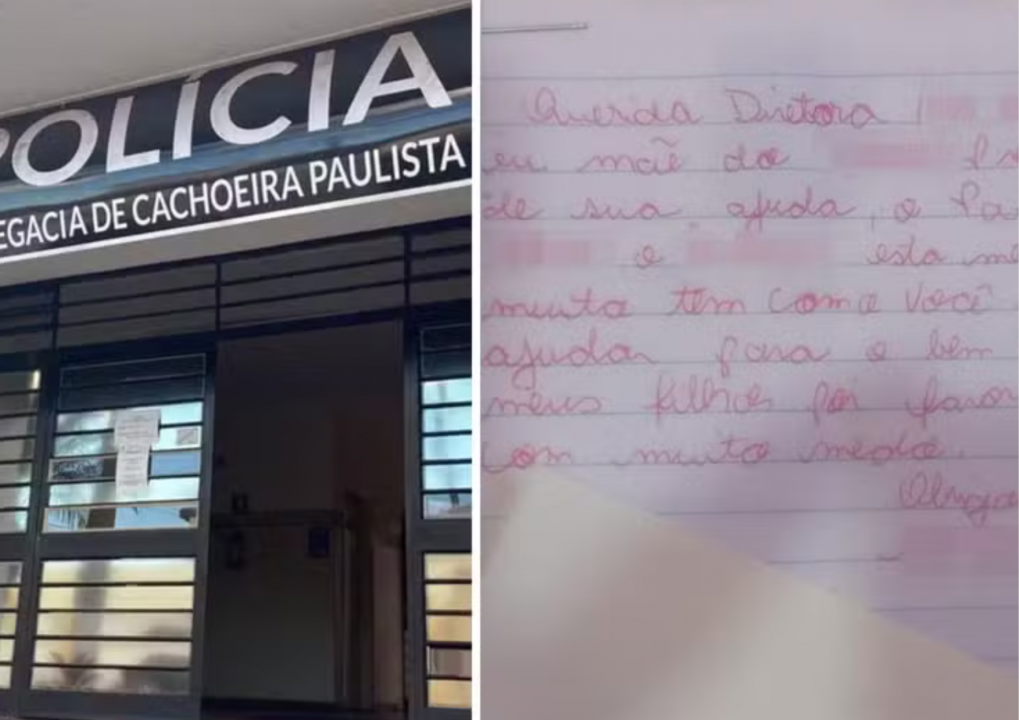 POLÍCIA
EGACIA DE CACHOEIRA PAULISTA
Querida Diretora
eu mãe do
de sua ajuda, o Pa
e esta me
muito tem como você
ajudar para o bem
meus filhos por favor
com muito medo.
Obriga